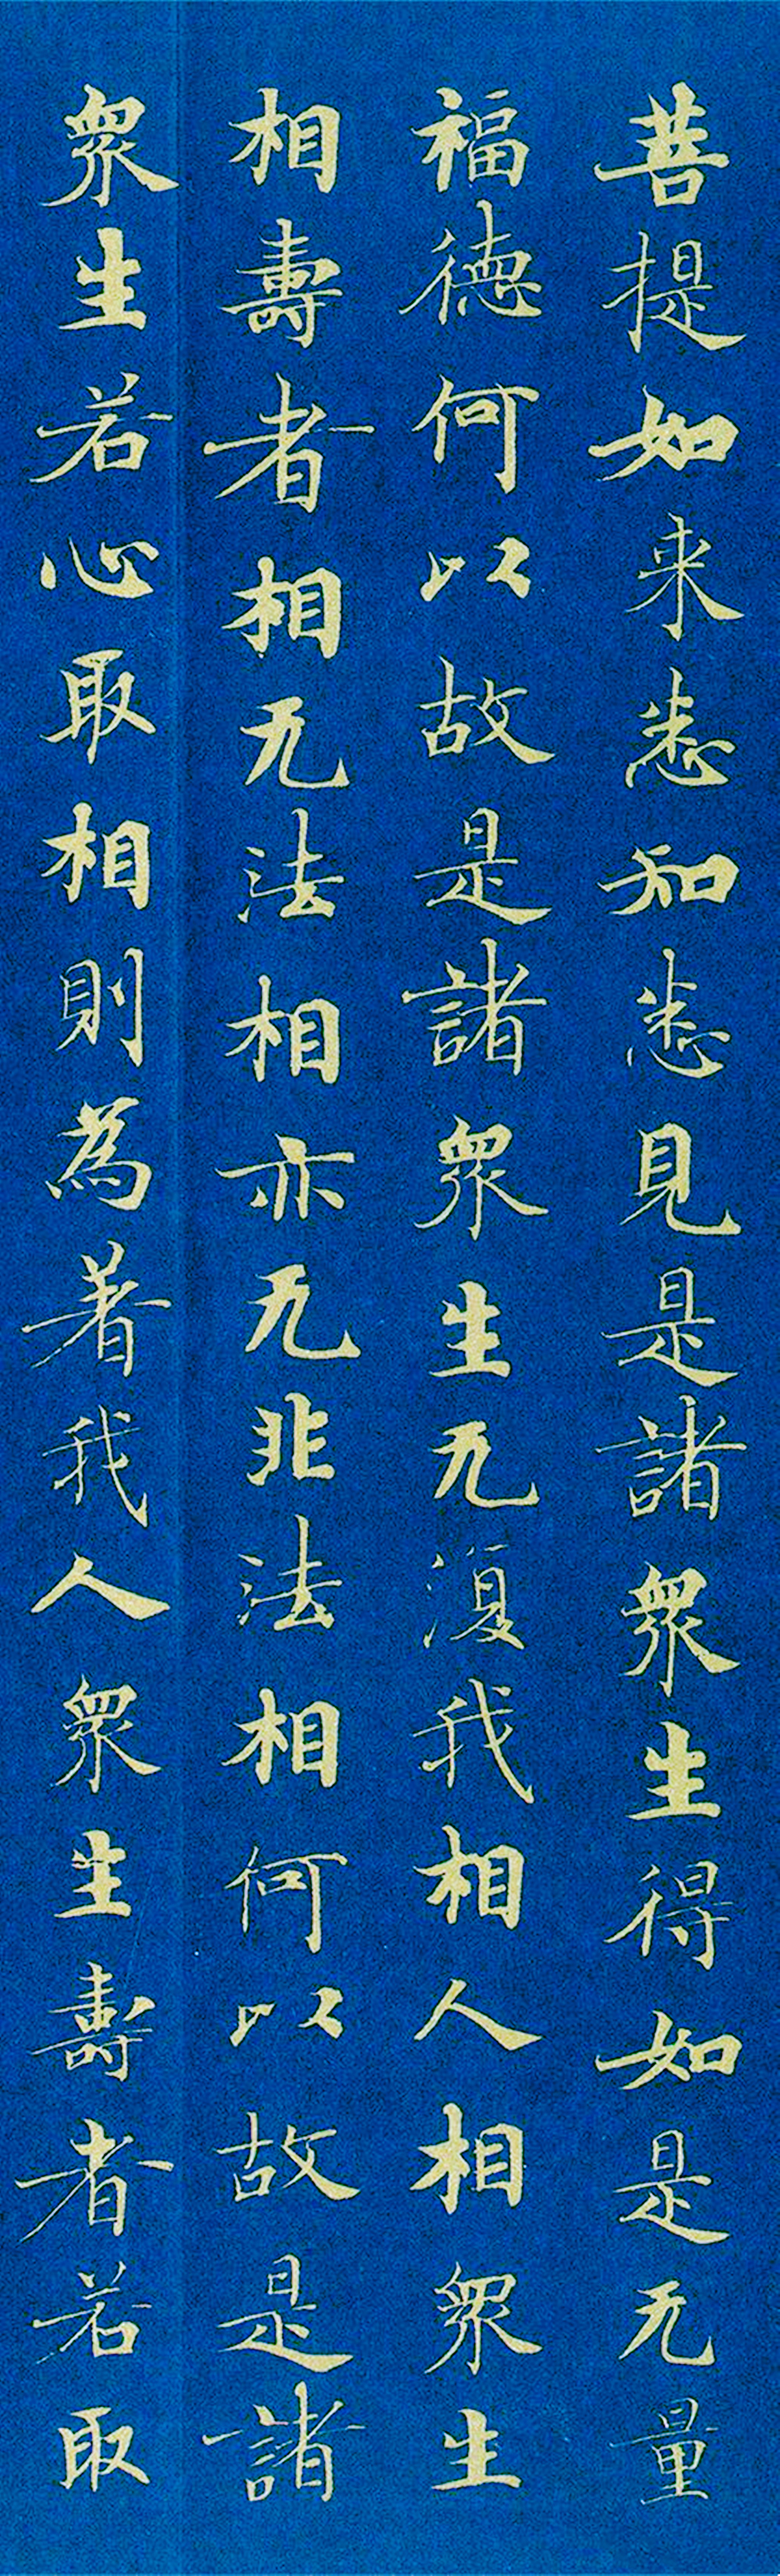 菩提如来悉知悉見是諸衆生得如是无量
福德何以故是諸衆生无復我相人相衆生
相壽者相无法相亦无非法相何以故是諸
衆生若心取相則為著我人衆生壽者若取